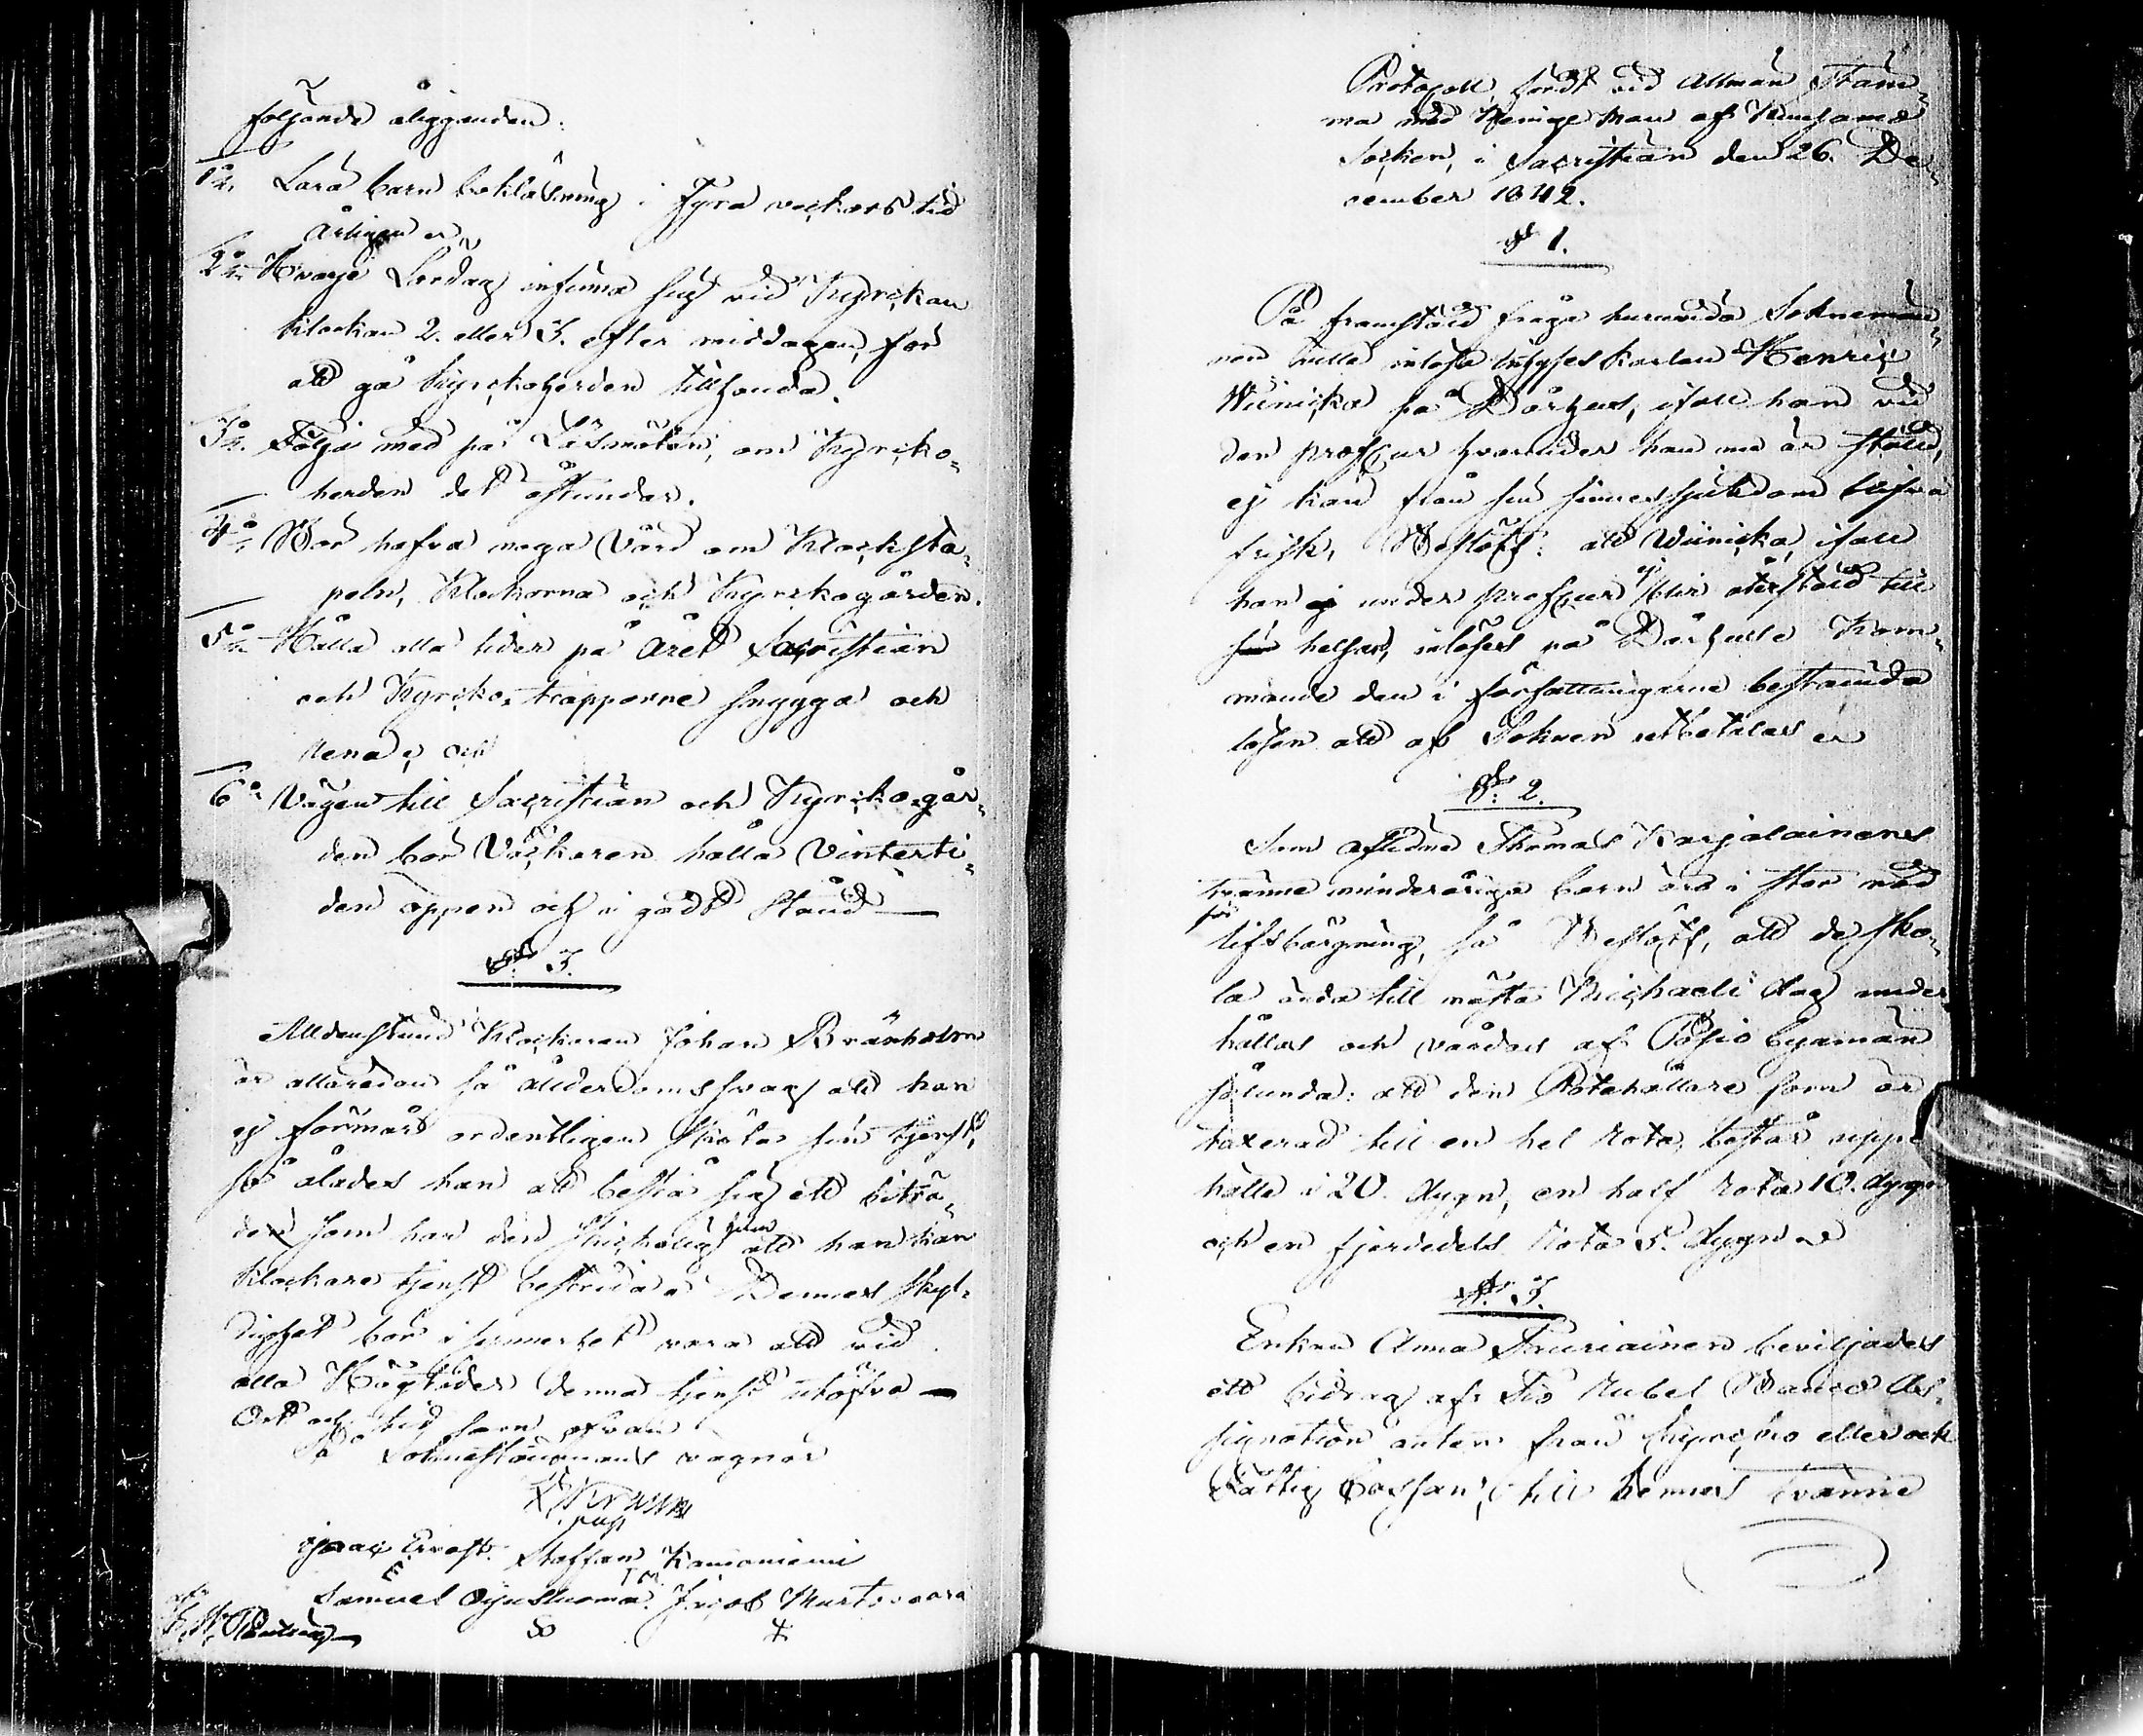 följande åligganden:
1o Lära barn bokläsning i fyra veckors tid
årligen
2o Hvarje Lördag infinna sig vid Kyrckan
klockan 2. eller 3. efter middagen, för
att gå Kyrckoherden tillhanda.
3o Följa med på Läsmöten, om Kyrcko-
herden det åstundar.
4o Bör hafva noga vård om Klocksta-
peln, Klockorna och Kyrckogården.
5o Hålla alla tider på året Sacristian
och Kyrcko-trapporne snygga och
rena, och
6o Vägen till Sacristian och Kyrcko-går-
den bör Väckaren hålla Vinterti-
den öppen och i godt stånd —
§. 3.
Alldenstund Klockaren Johan Bränholm
är allaredan så ålderdomssvag att han
ej förmår ordentligen sköta sin tjenst,
så ålades han att bestå sig ett biträ-
de som har den skickelig att han kan
klockare tjenst bestrida. Dennes skyl-
dighet bör i synnerhet vara att vid
alla Högtider denna tjenst utöfva —
Ort och tid som ofvan
På Soknestämmans vagnar
Staffan Kamoniemi
Samuel Jacob Murtovaara
Protocoll, fördt vid Allmän Stäm-
ma med Menige man af Kuusamo
Socken, i Sacristian den 26. De-
cember 1842.
§ 1.
På framstäld fråga huruvida Soknemän-
nen ville inlösa inhyses karlen Henric
Wiinicka på Dårhus, ifall han vid
den profkur hvarunder han nu är stäld,
ej kan från sin sinnessjukdom blifva
frisk, Beslöts: att Wiinicka, ifall
han under profkur ej blir återstäld till
helsan, inlöses på Dårhus. Kom-
mande den i författningarne bestämda
lösen att af Soknen utbetalas
§. 2.
Som aflidne Thomas Karjalainens
tvänne minderåriga barn äro i stor nöd
för lifsbärgning, så Beslöts, att de sko-
la ända till nästa Michaeli dag under-
hållas och vårdas af Posio byamän
sålunda: att den Rotehållare som är
taxerad till en hel Rota, består uppe-
hälle i 20. dygn, en half Rota 10. dygn
och en fjerdedels Rota 5. dygn
§. 3.
Enkan Anna beviljades
ett bidrag af Tio Rubel Banco As-
signation antingen från Kyrcko eller ock
Fattig Cassan, till hennes tvänne